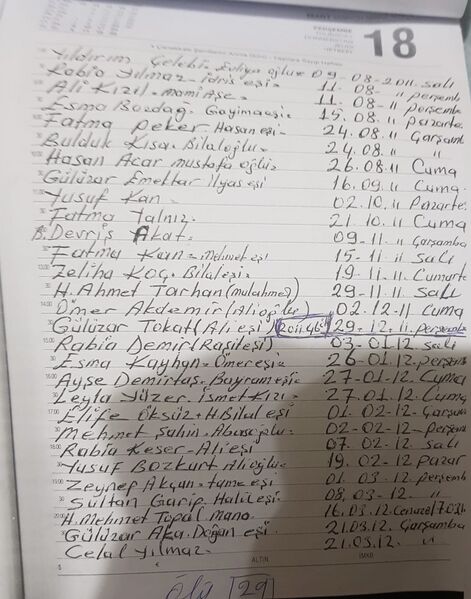 18
Yıldırım Çelebi - Zekiya oğlu 09-08-2011. Salı
Rabia Yılmaz - idris eşi. 11. 08- " perşemb
Ali Kızıl - Mami Aşe. 11. 08- " perşemb
Esma Bozdağ - Gayimaeşi. 15. 08 " pazarte.
Fatma peker Hasan eşi. 24. 08. " Çarşamb
Bulduk Kısa. Bilaloğlu. 24. 08. " "
Hasan Acar mustafa oğlu. 26. 08 11 Cuma
Gülüzar Emektar ilyas eşi 16. 09 11 Cuma.
Yusuf Kan. 02. 10. 11 Pazarte.
Fatma Yalnız. 21. 10. 11 Cuma
Devriş Akat. 09-11. 11 Çarşamba
Fatma Kan - Mehmet eşi 15-11 11 Salı
Zeliha Koç. Bilaleşi. 19-11. 11. Cumarte
H. Ahmet Tarhan (mulahmed) 29-11. 11. Salı
Ömer Akdemir (Alioğlu) 02. 12-11 Cuma
Gülüzar Tokat (Ali eşi) 2011.46 29-12. 11. perşembe
Rabia Demir (Raşit eşi) 03-01. 12 salı
Esma Kayhan. Ömer eşi. 26-01. 12. perşem
Ayşe Demirtaş. Bayram eşi. 27-01. 12. Cuma
Leyla Yüzer. ismet Kızı. 27. 01. 12. Cuma
Elife Öksüz. H. Bilal eşi 01. 02-12- Çarşam
Mehmet Şahin. Abasoğlu. 02-02-12. perşem
Rabia Keser - Ali eşi 07. 02. 12. Salı
Yusuf Bozkurt Alioğlu. 19. 02-12 Pazar
Zeynep Akçan. eşi 01. 03. 12 perşemb
Sultan Garip Halil eşi. 08. 03-12. "
H. Mehmet Topal. Mano. 16. 03. 12
Gülüzar Aka. Doğan eşi 21. 03. 12. Çarşamba
Celal Yılmaz. 21. 03. 12. "
ALTIN
Ölü 29